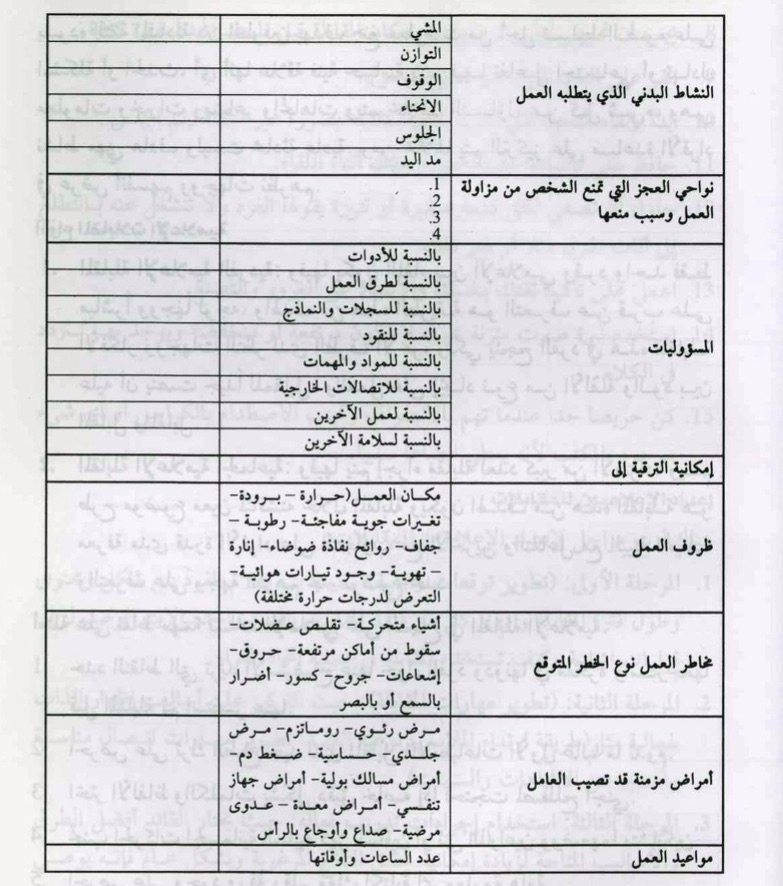 المشي
التوازن
الوقوف
النشاط البدني الذي يتطلبه العمل
الانحناء
الجلوس
مد اليد
نواحي العجز التي تمنع الشخص من مزاولة
العمل وسبب منعها
1.
2.
3.
4.
المسؤوليات
بالنسبة للأدوات
بالنسبة لطرق العمل
بالنسبة للسجلات والنماذج
بالنسبة للنقود
بالنسبة للمواد والمهمات
بالنسبة للاتصالات الخارجية
بالنسبة لعمل الآخرين
بالنسبة لسلامة الآخرين
إمكانية الترقية إلى
ظروف العمل
مكان العمل(حرارة – برودة-
تغيرات جوية مفاجئة- رطوبة –
جفاف- روائح نفاذة ضوضاء- إنارة
– تهوية- وجود تيارات هوائية-
التعرض لدرجات حرارة مختلفة)
مخاطر العمل نوع الخطر المتوقع
أشياء متحركة- تقلص عضلات-
سقوط من أماكن مرتفعة- حروق-
إشعاعات- جروح- كسور- أضرار
بالسمع أو بالبصر
أمراض مزمنة قد تصيب العامل
مرض رئوي- روماتزم- مرض
جلدي- حساسية- ضغط دم-
أمراض مسالك بولية- أمراض جهاز
تنفسي- أمراض معدة- عدوى
مرضية- صداع وأوجاع بالرأس
مواعيد العمل
عدد الساعات وأوقاتها